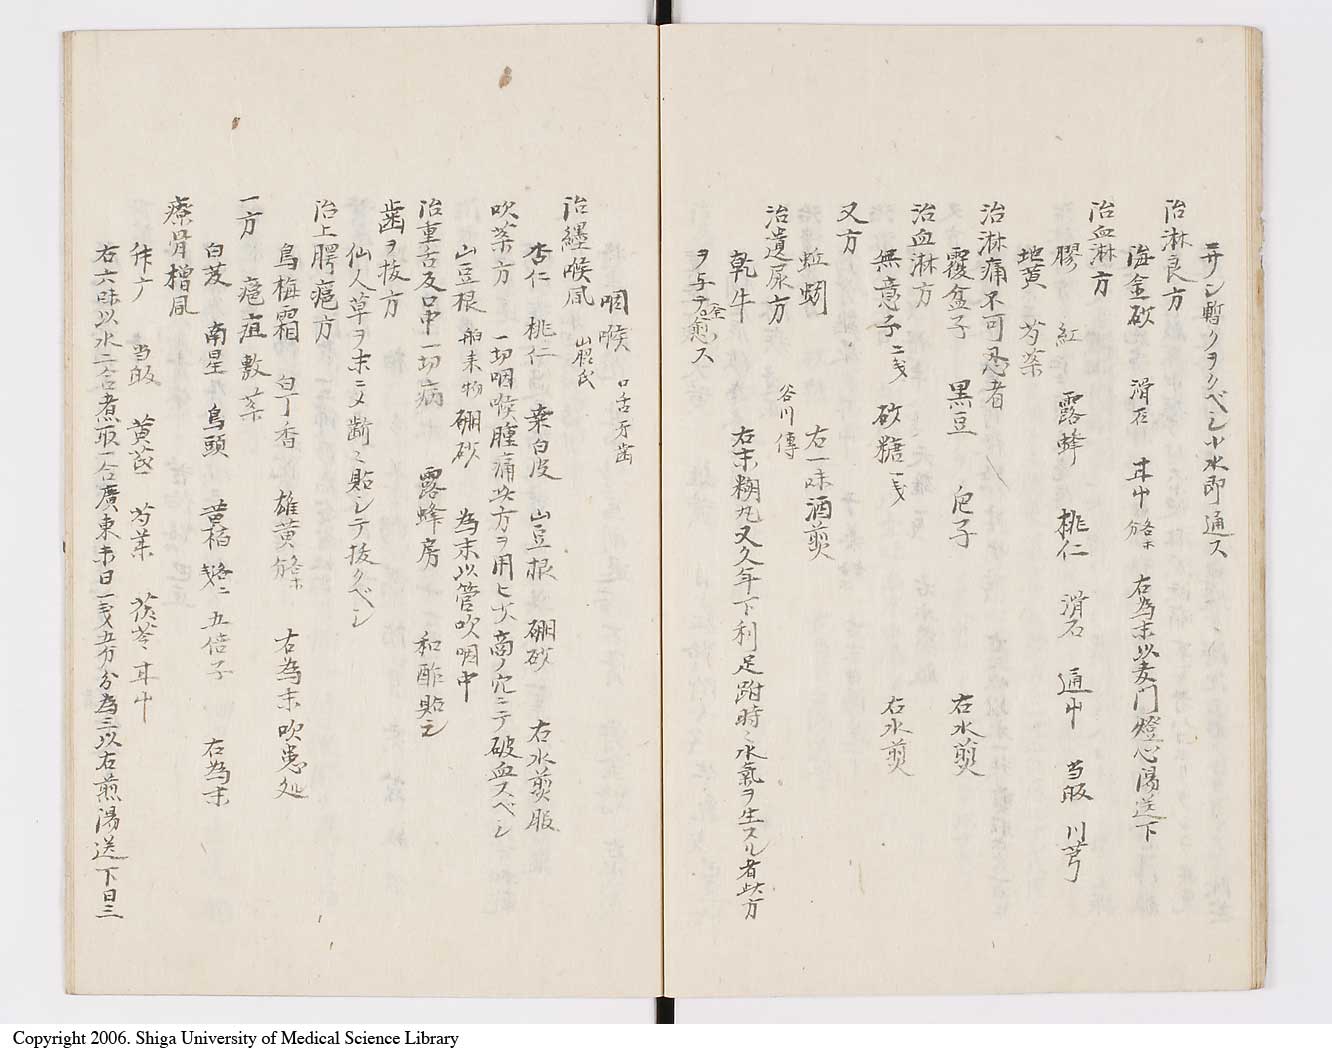 暫クヲクベシ小水即通ス
治淋良方
海金砂 滑石 右為末以麦门燈心湯送下
治血淋方
膠 紅 露蜂 桃仁 滑石 通中 当皈 川芎
地黄 芍薬
治淋痛不可忍者
覆盆子 黒豆 右水煎
治血淋方
無意子 二戋 砂糖 一戋 右水煎
又方
蚯蚓 右一味酒煎
治遺尿方 谷川傳
乾牛 右末糊丸又久年下利足跗時〻水氣ヲ生スル者此方
ヲ与テ全愈ス
咽喉 口舌牙歯
治纏喉風
杏仁 桃仁 桑白皮 山豆根 硼砂 右水煎服
吹薬方 一切咽喉腫痛此方ヲ用ヒ少商ノ穴ニテ破血スベシ
山豆根 舶来物 硼砂 為末以管吹咽中
治重舌及口中一切病 露蜂房 和酢貼之
歯ヲ抜方
仙人草ヲ末ニメ齗ニ貼シテ抜クベシ
治上腭疮方
烏梅霜 白丁香 雄黄 右為末吹患处
一方 疽敷薬
白芨 南星 烏頭 黄柏 五倍子 右為末
療骨槽風
当皈 黄芪 芍薬 茯苓
右六味以水二合煮取一合廣東末日一戋五分分為三以右煎湯送下日三
Copyright 2006. Shiga University of Medical Science Library